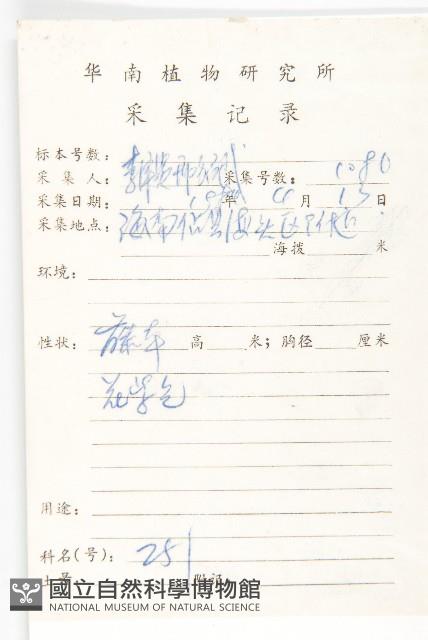 华南植物研究所
采集记录
标本号数：
采集人： 采集号数： 1080
采集日期： 年 月 13 日
采集地点： 海南
海拨 米
环境：
性状： 藤本 高 米；胸径 厘米
花紫色
用途：
科名(号)： 251
國立自然科學博物館
NATIONAL MUSEUM OF NATURAL SCIENCE